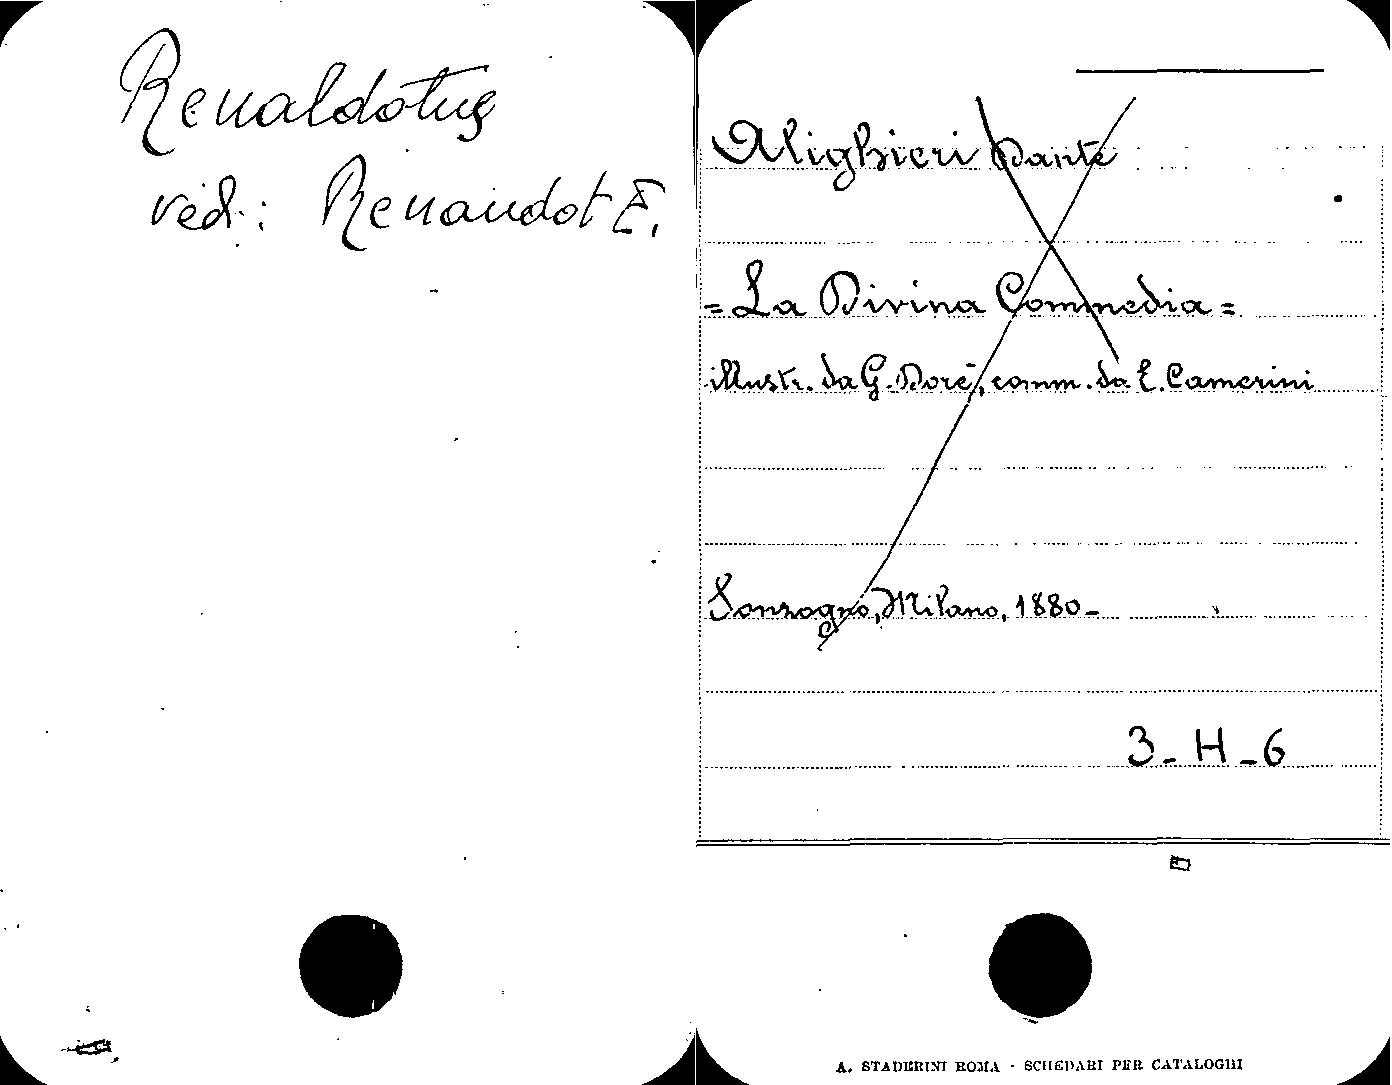 Renaldotus
ved.: Renaudot E.
Alighieri Dante
= La Divina Commedia =
illustr. da G. Doré, comm. da E. Camerini
Sonzogno, Milano, 1880 -
3 - H - 6
A. STADERINI ROMA - SCHEDARI PER CATALOGHI